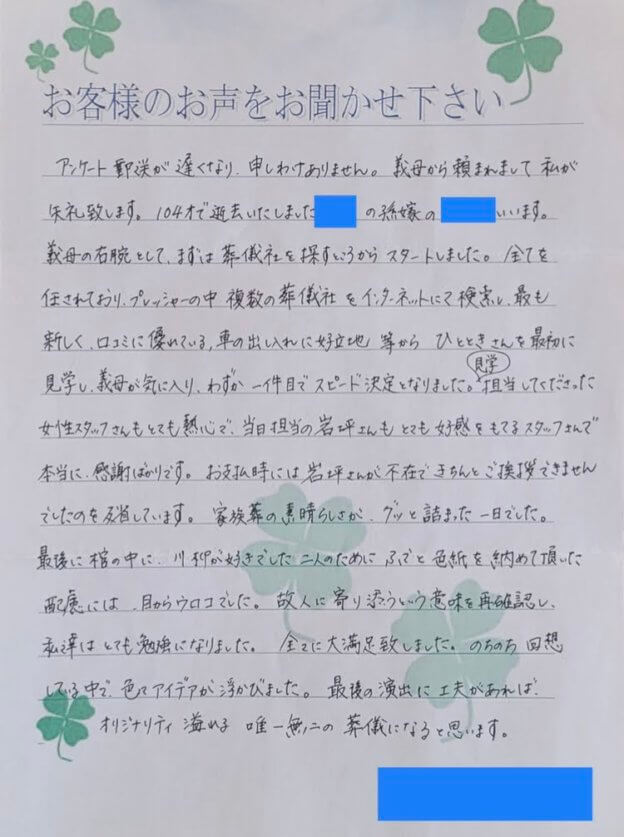 お客様のお声をお聞かせ下さい
アンケート郵送が遅くなり、申しわけありません。義母から頼まれまして私が
失礼致します。104才で逝去いたしました の孫嫁の いいます。
義母の右腕として、まずは葬儀社を探すところからスタートしました。全てを
任されており、プレッシャーの中 複数の葬儀社をインターネットにて検索し、最も
新しく、口コミに優れている、車の出し入れに好立地 等から ひとときさんを最初に
見学し、義母が気に入り、わずか一件目でスピード決定となりました。見学担当してくださった
女性スタッフさんもとても熱心で、当日担当の岩坪さんもとても好感をもてるスタッフさんで
本当に、感謝ばかりです。お支払時には岩坪さんが不在できちんとご挨拶できません
でしたのを反省しています。家族葬の素晴らしさが、グッと詰まった一日でした。
最後に棺の中に、川柳が好きでした二人のために ふでと色紙を納めて頂いた
配慮には、目からウロコでした。故人に寄り添うという意味を再確認し、
私達はとても勉強になりました。全てに大満足致しました。のちのち回想
している中で、色々アイデアが浮かびました。最後の演出に工夫があれば、
オリジナリティ溢れる 唯一無二の葬儀になると思います。